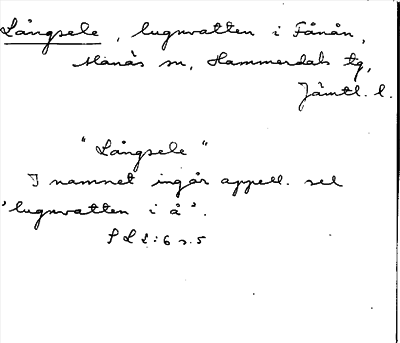 Långsele, lugnvatten i Fånån,
Månäs sn, Hammerdals tg,
Jämtl. l.
"Långsele"
I namnet ingår appell. sel
'lugnvatten i å'.
SL 2:6 s. 5